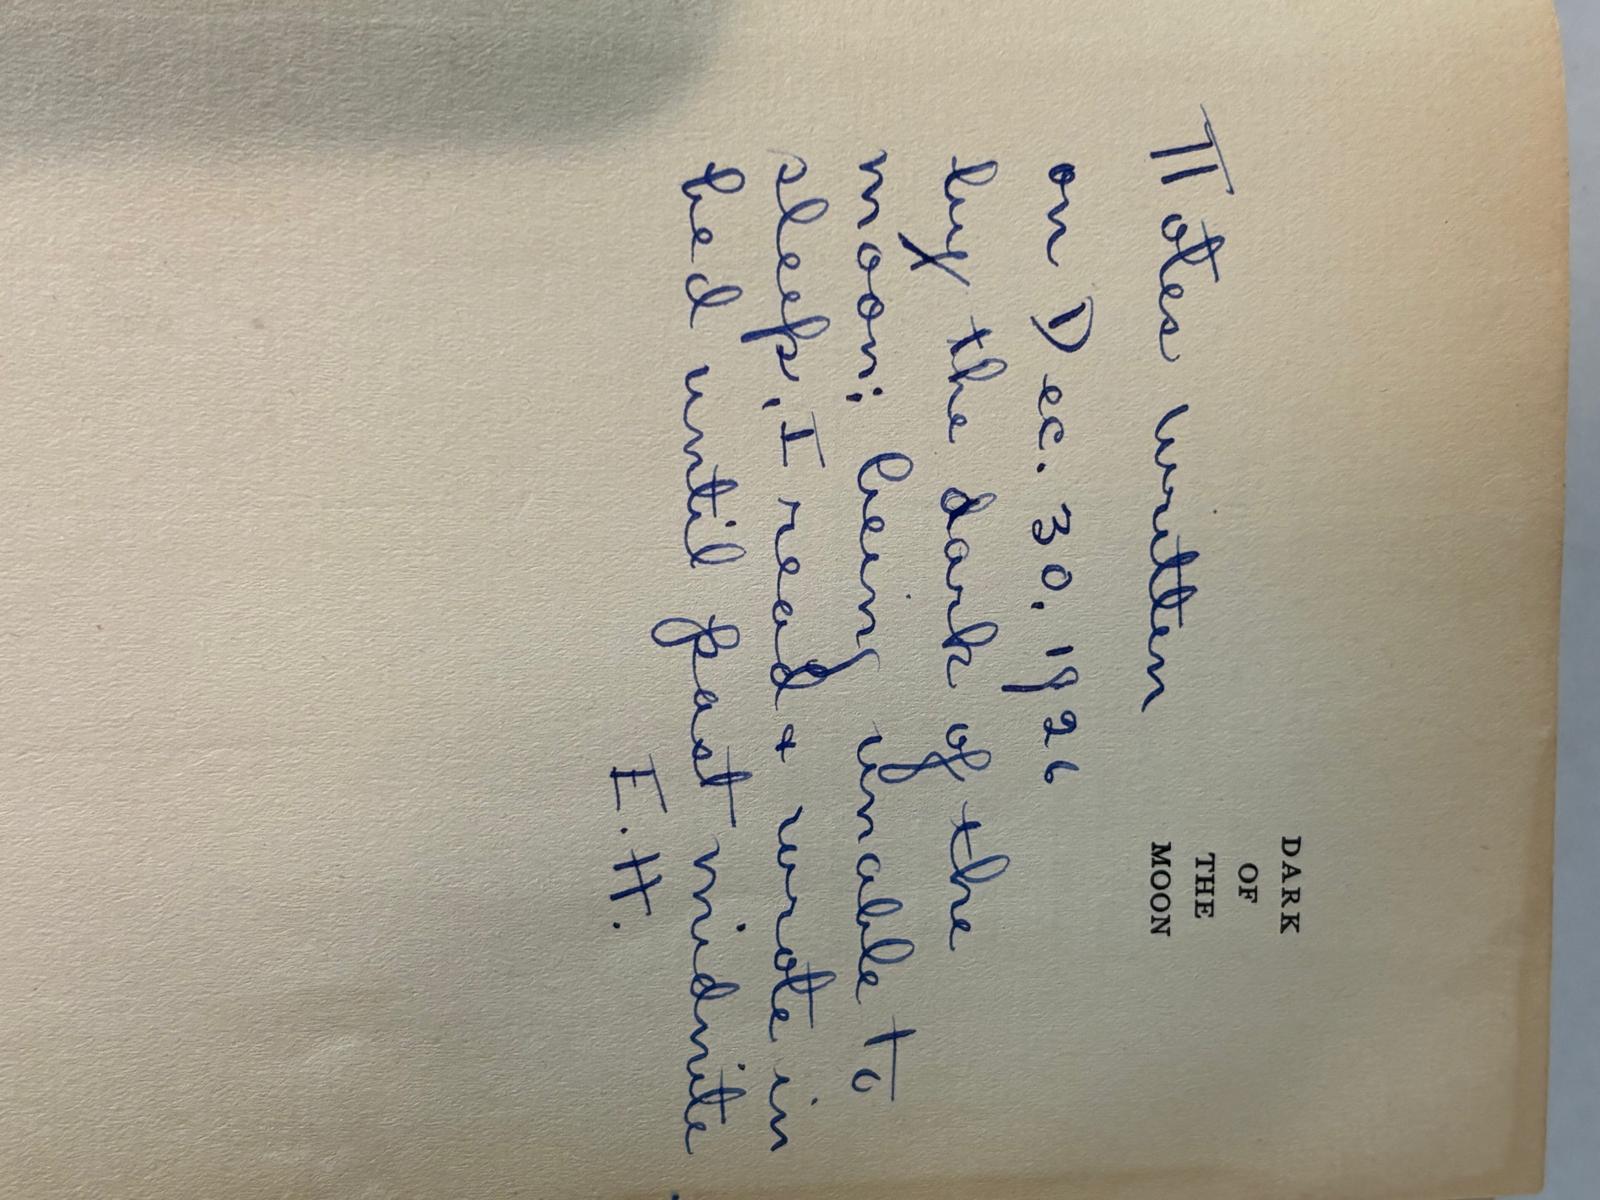 DARK
OF
THE
MOON
Notes written
on Dec. 30. 1926
by the dark of the
moon; being unable to
sleep, I read + wrote in
bed until past midnite
E.H.